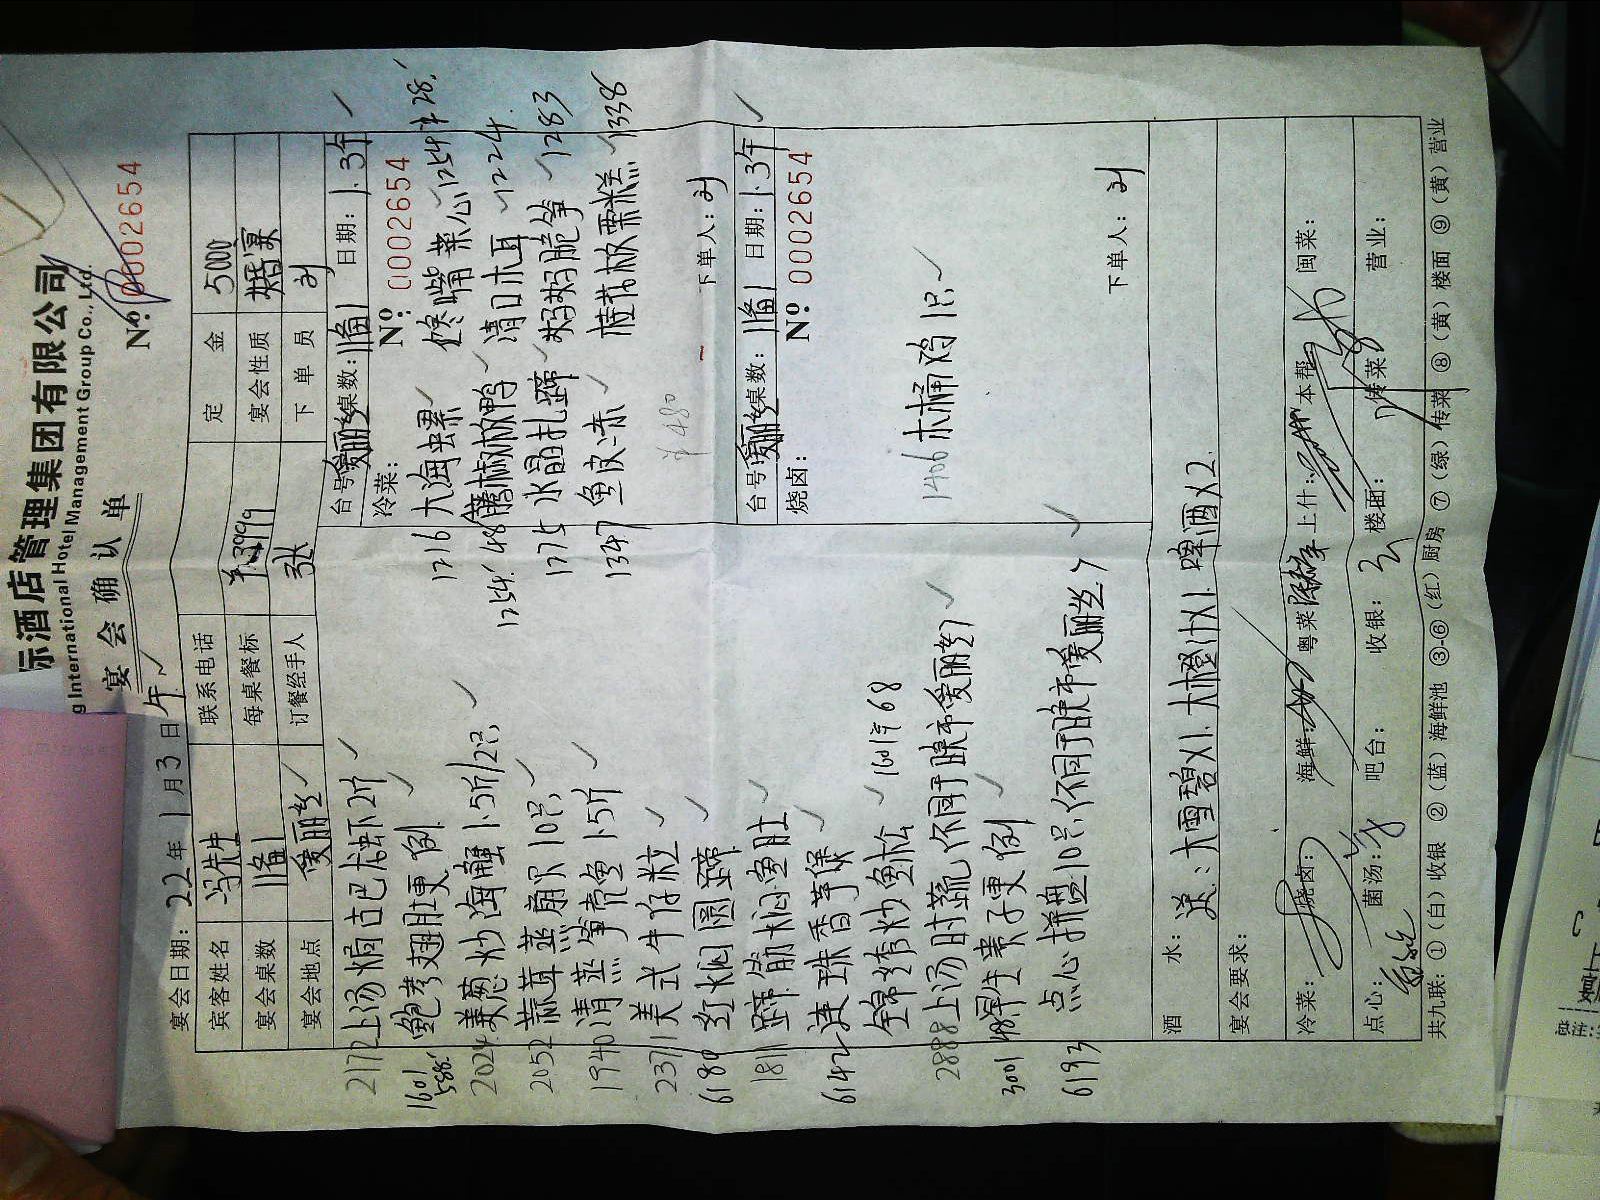 示酒店管理集团有限公司
g International Hotel Management Group Co., Ltd.
宴会确认单
Nº: 0002654
宴会日期: 22年1月3日 午
宾客姓名 先生 联系电话 定金 5000
宴会桌数 临1 每桌餐标 ¥3999 宴会性质 婚宴
宴会地点 爱丽丝 订餐经手人 张 下单员 刘
2172 上汤焗古巴龙虾2斤
1601 588 鲍参翅肚羹 例
2024 姜葱炒海蟹1.5斤/2只
2052 蒜茸蒸扇贝10只
1940 清蒸笋青鱼1.5斤
2371 美式牛仔粒
6180 红焖圆蹄
1811 蹄筋焖鱼肚
6142 珠香芋煲
锦绣炒鱼松 1601 68
2888 上汤时蔬(不同于晚市爱丽丝)
3001 羹 例
6193 点心拼盘10只(不同于晚市爱丽丝)
台号 爱丽丝 桌数: 临1 日期: 1.3午
冷菜:
Nº: 0002654
1716 大海螺
嘴菜心 1254 28
1254 48
清口木耳 1224
1275 水晶扎蹄
妈妈脆笋 1283
1347 鱼皮
桂花板栗糕 1338
¥480
下单人: 刘
台号 爱丽丝 桌数: 临1 日期: 1.3午
烧卤:
Nº: 0002654
1406 木桶鸡1只
下单人: 刘
酒水: 送: 大雪碧X1. 大橙汁X1. 啤酒X2
宴会要求:
冷菜: 烧卤: 海鲜: 粤菜 上什: 本帮 闽菜:
点心: 菌汤: 吧台: 收银: 楼面: 传菜 营业:
共九联: ①(白)收银 ②(蓝)海鲜池 ③-⑥(红)厨房 ⑦(绿)传菜 ⑧(黄)楼面 ⑨(黄)营业